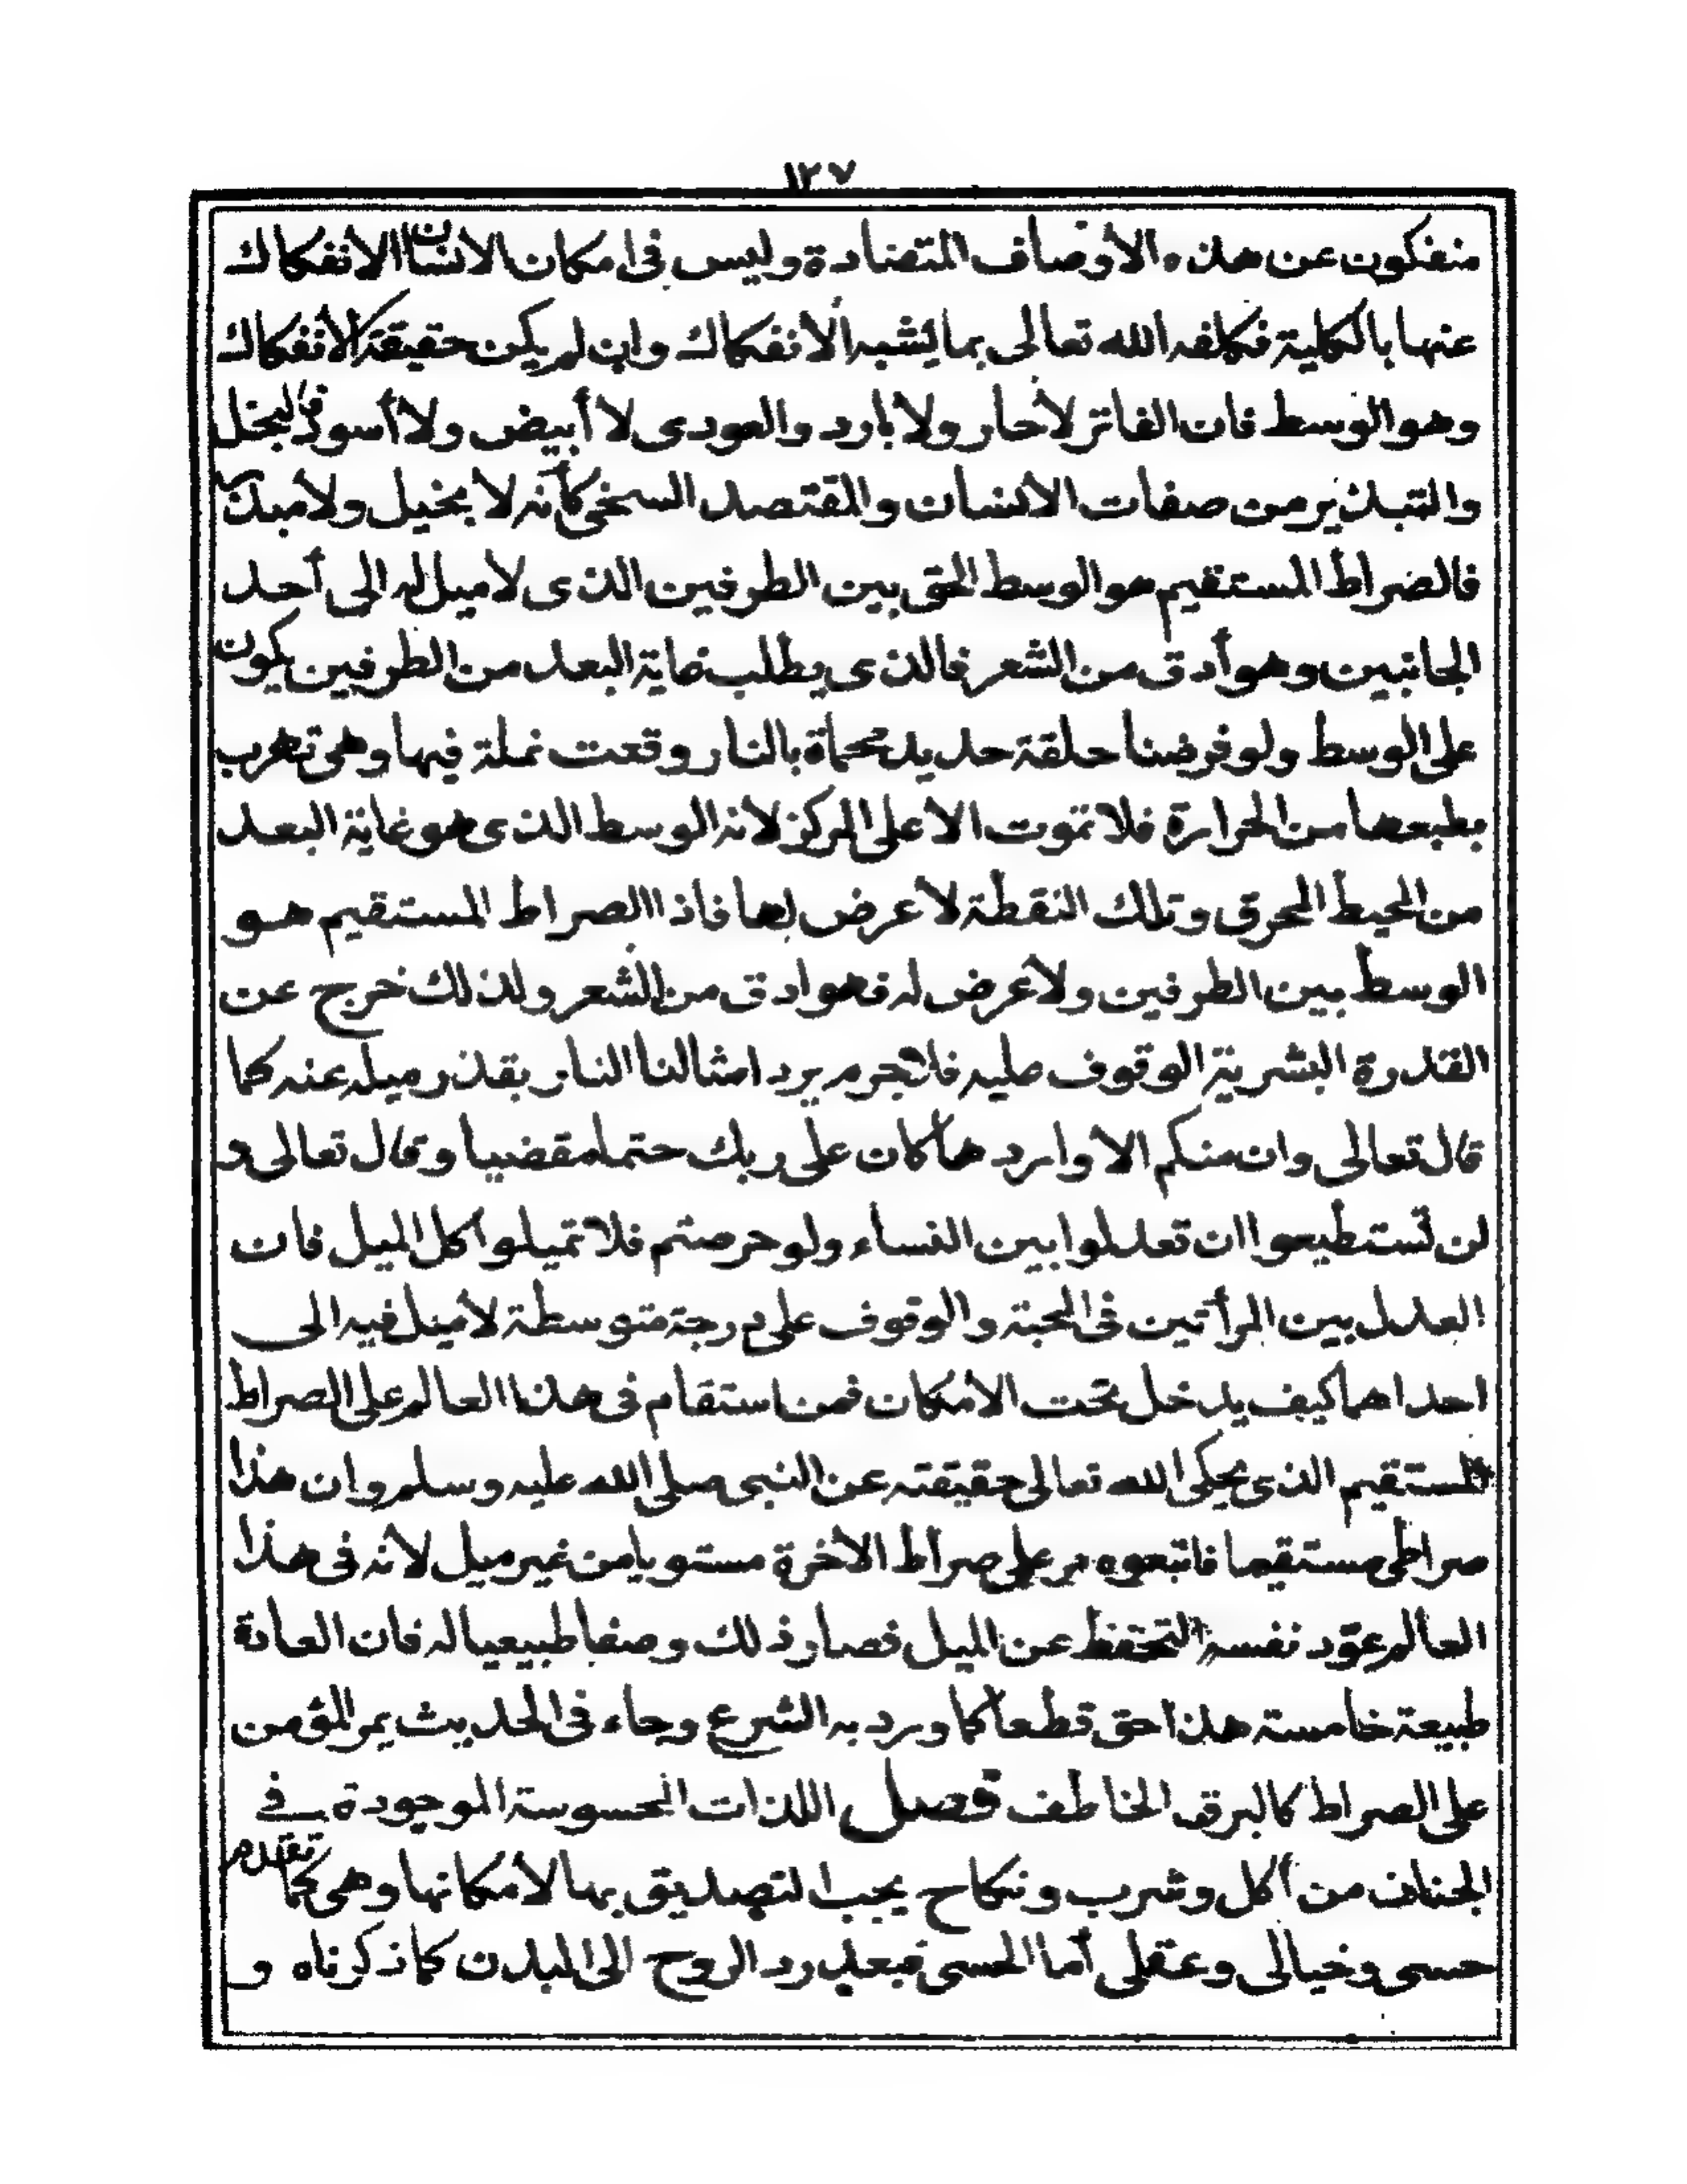 ١٢٧
منفكون عن هذه الأوصاف المتضادة وليس فى امكان الانسان الانفكاك
عنها بالكلية فكلفه الله تعالى بما يشبه الأنفكاك وان لم يكن حقيقة الأنفكاك
وهو الوسط فان الفاتر لأحار ولا بارد والعودى لا أبيض ولا أسود فالبخل
والتبذير من صفات الانسان والمقتصد السخى كأنه لا بخيل ولا مبذر
فالصراط المستقيم هو الوسط الحق بين الطرفين الذى لا ميل له الى أحد
الجانبين وهو أدق من الشعر فالذى يطلب غاية البعد من الطرفين يكون
على الوسط ولو فرضنا حلقة حديد محماة بالنار وقعت نملة فيها وهى تهرب
بطبعها من الحرارة فلا تموت الا على المركز لانه الوسط الذى هو غاية البعد
من المحيط المحرق وتلك النقطة لا عرض لها فاذا الصراط المستقيم هو
الوسط بين الطرفين ولا عرض له فهو ادق من الشعر ولذلك خرج عن
القدرة البشرية الوقوف عليه فلا جرم يرد امثالنا النار بقدر ميله عنه كما
قال تعالى وان منكم الا واردها كان على ربك حتما مقضيا وقال تعالى و
لن تستطيعوا ان تعدلوا بين النساء ولو حرصتم فلا تميلوا كل الميل فان
العدل بين المرأتين فى المحبة والوقوف على درجة متوسطة لا ميل فيه الى
احداهما كيف يدخل تحت الامكان فمن استقام فى هذا العالم على الصراط
المستقيم الذى يحكى الله تعالى حقيقته عن النبى صلى الله عليه وسلم وان هذا
صراطى مستقيما فاتبعوه مر على صراط الاخرة مستويا من غير ميل لأنه فى هذا
العالم عوّد نفسه التحفظ عن الميل فصار ذلك وصفا طبيعيا له فان العادة
طبيعة خامسة هذا حق قطعا كما ورد به الشرع وجاء فى الحديث يمر المؤمن
على الصراط كالبرق الخاطف فصل اللذات المحسوسة الموجودة فى
الجنان من أكل وشرب ونكاح يجب التصديق بها لامكانها وهى كما تقدم
حسى وخيالى وعقلى أما الحسى فبعد رد الروح الى البدن كما ذكرناه و